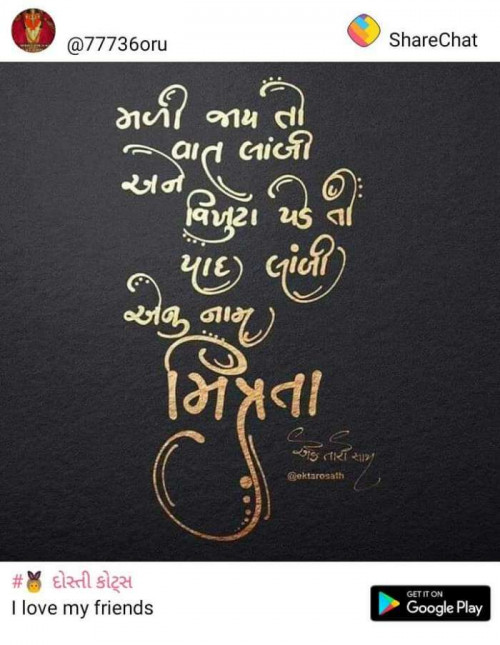 @77736oru
ShareChat
મળી જાય તો
વાત લાંબી
અને
વિખુટા પડે તો
યાદ લાંબી
એનુ નામ
મિત્રતા
એક તારો સાથ
@ektarosath
#🏅 દોસ્તી કોટ્સ
I love my friends
GET IT ON
Google Play